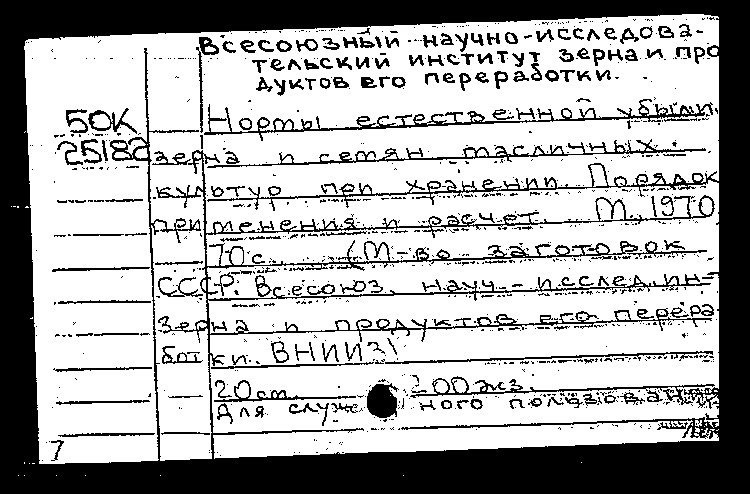 Всесоюзный научно-исследова-
тельский институт зерна и про
дуктов его переработки.
50К Нормы естественной убыли
25182 зерна и семян масличных
культур при хранении. Порядок
применения и расчет. М., 1970
70с. (М-во заготовок
СССР. Всесоюз. науч.-исслед. ин-т
зерна и продуктов его перера
ботки. ВНИИЗ)
20 200 экз.
Для служебного пользования